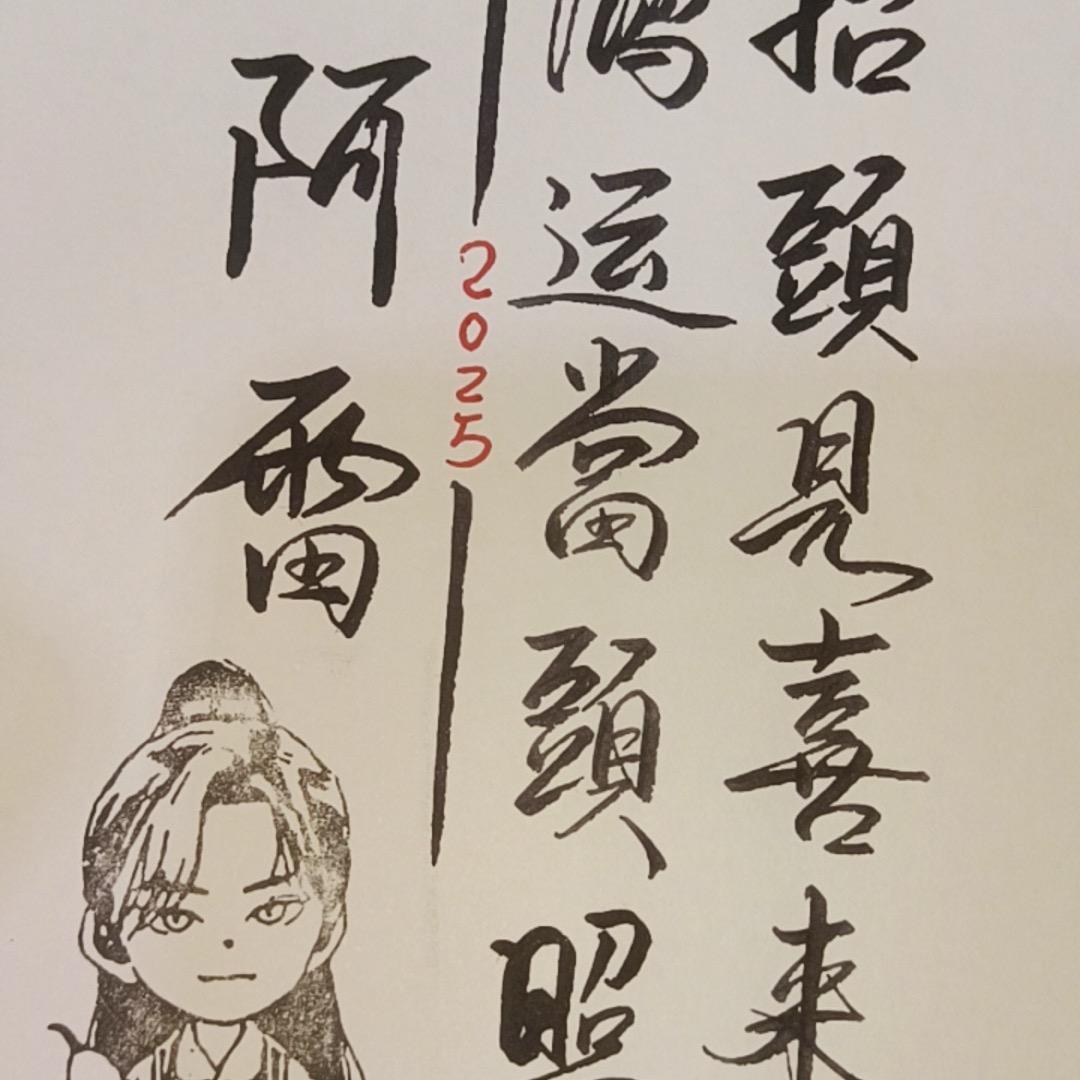 抬頭見喜来
鴻运當頭照
2025
阿雷